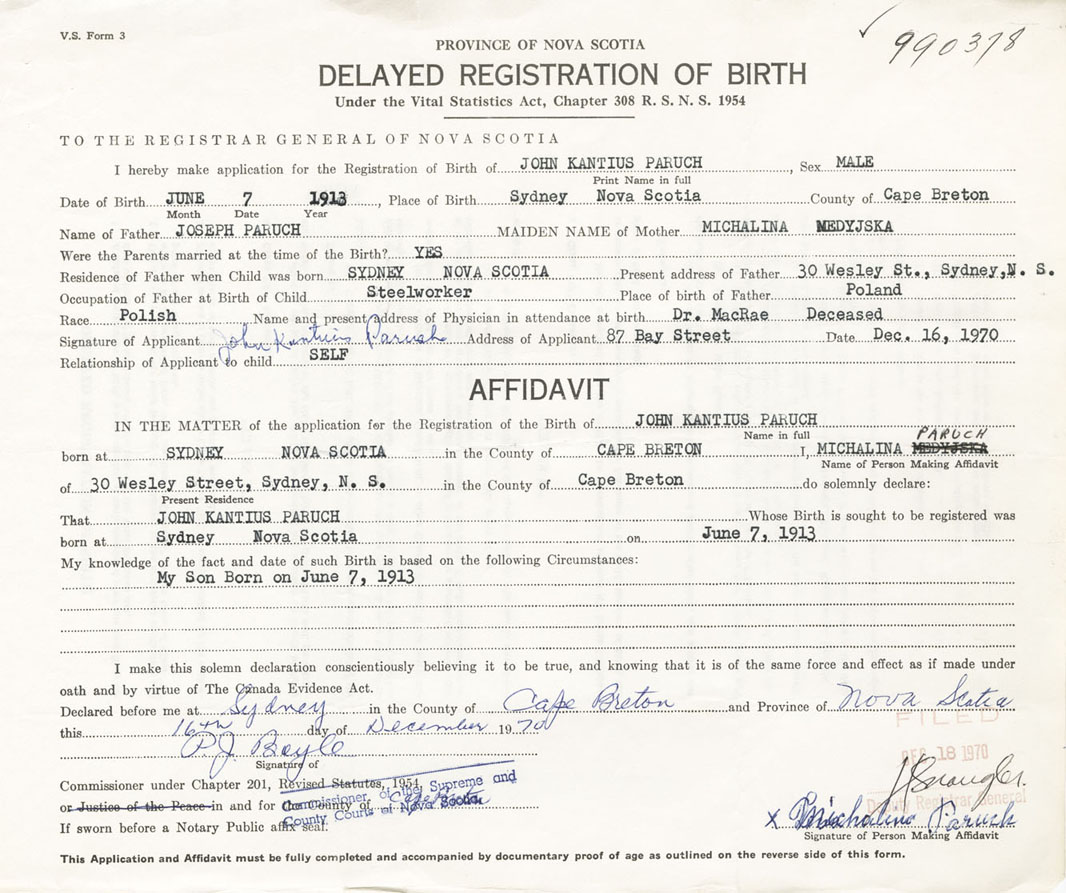 V.S. Form 3
990378
PROVINCE OF NOVA SCOTIA
DELAYED REGISTRATION OF BIRTH
Under the Vital Statistics Act, Chapter 308 R. S. N. S. 1954
TO THE REGISTRAR GENERAL OF NOVA SCOTIA
I hereby make application for the Registration of Birth of JOHN KANTIUS PARUCH, Sex MALE
Print Name in full
Date of Birth JUNE 7 1913, Place of Birth Sydney Nova Scotia County of Cape Breton
Month Date Year
Name of Father JOSEPH PARUCH MAIDEN NAME of Mother MICHALINA MEDYJSKA
Were the Parents married at the time of the Birth? YES
Residence of Father when Child was born SYDNEY NOVA SCOTIA Present address of Father 30 Wesley St., Sydney, N. S.
Occupation of Father at Birth of Child Steelworker Place of birth of Father Poland
Race Polish Name and present address of Physician in attendance at birth Dr. MacRae Deceased
Signature of Applicant John Kantius Paruch Address of Applicant 87 Bay Street Date Dec. 16, 1970
Relationship of Applicant to child SELF
AFFIDAVIT
IN THE MATTER of the application for the Registration of the Birth of JOHN KANTIUS PARUCH
Name in full
PARUCH
born at SYDNEY NOVA SCOTIA in the County of CAPE BRETON I, MICHALINA MEDYJSKA
Name of Person Making Affidavit
of 30 Wesley Street, Sydney, N. S. in the County of Cape Breton do solemnly declare:
Present Residence
That JOHN KANTIUS PARUCH Whose Birth is sought to be registered was
born at Sydney Nova Scotia on June 7, 1913
My knowledge of the fact and date of such Birth is based on the following Circumstances:
My Son Born on June 7, 1913
I make this solemn declaration conscientiously believing it to be true, and knowing that it is of the same force and effect as if made under
oath and by virtue of The Canada Evidence Act.
Declared before me at Sydney in the County of Cape Breton and Province of Nova Scotia
this 16th day of December 1970
FILED
P.J. Boyle
DEC 18 1970
Signature of
Commissioner under Chapter 201, Revised Statutes, 1954,
or Justice of the Peace in and for the County of Cape Breton
Commissioner of the Supreme and
County Courts of Nova Scotia
Deputy Registrar General
If sworn before a Notary Public affix seal.
x Michalina Paruch
Signature of Person Making Affidavit
This Application and Affidavit must be fully completed and accompanied by documentary proof of age as outlined on the reverse side of this form.